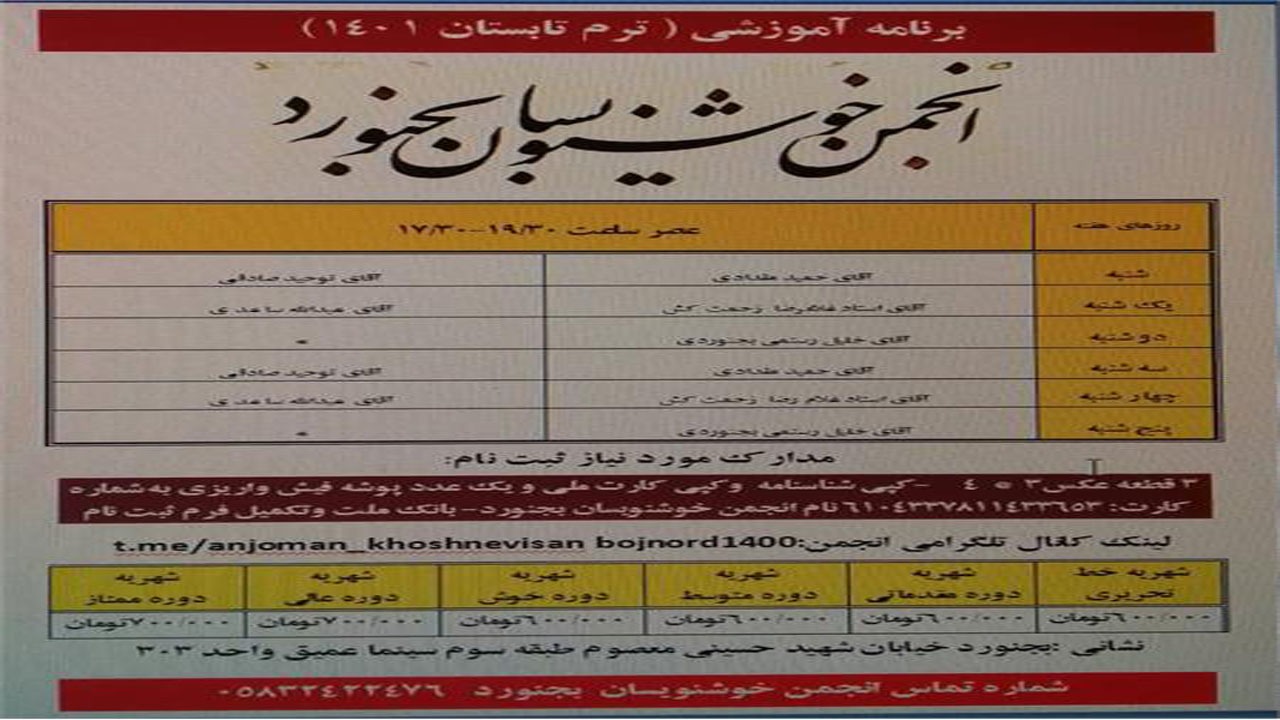 برنامه آموزشی ( ترم تابستان ۱۴۰۱)
انجمن خوشنویسان بجنورد
روزهای هفته عصر ساعت ۱۹/۳۰-۱۷/۳۰
شنبه آقای حمید مقدادی آقای توحید صادقی
یک شنبه آقای استاد غلامرضا زحمت کش آقای عبدالله ساعدی
دو شنبه آقای خلیل رستمی بجنوردی *
سه شنبه آقای حمید مقدادی آقای توحید صادقی
چهار شنبه آقای استاد غلام رضا زحمت کش آقای عبدالله ساعدی
پنج شنبه آقای خلیل رستمی بجنوردی *
مدارک مورد نیاز ثبت نام:
۳ قطعه عکس۳ * ۴ -کپی شناسنامه وکپی کارت ملی و یک عدد پوشه فیش واریزی به شماره
کارت: ۶۱۰۴۳۳۷۸۱۱۴۳۳۶۵۳ نام انجمن خوشنویسان بجنورد- بانک ملت وتکمیل فرم ثبت نام
لینک کانال تلگرامی انجمن:t.me/anjoman_khoshnevisan bojnord1400
شهریه خط تحریری شهریه دوره مقدماتی شهریه دوره متوسط شهریه دوره خوش شهریه دوره عالی شهریه دوره ممتاز
۶۰۰/۰۰۰تومان ۶۰۰/۰۰۰تومان ۶۰۰/۰۰۰تومان ۶۰۰/۰۰۰تومان ۷۰۰/۰۰۰تومان ۷۰۰/۰۰۰تومان
نشانی :بجنورد خیابان شهید حسینی معصوم طبقه سوم سینما عمیق واحد ۳۰۳
شماره تماس انجمن خوشنویسان بجنورد ۰۵۸۳۲۴۲۲۴۷۶